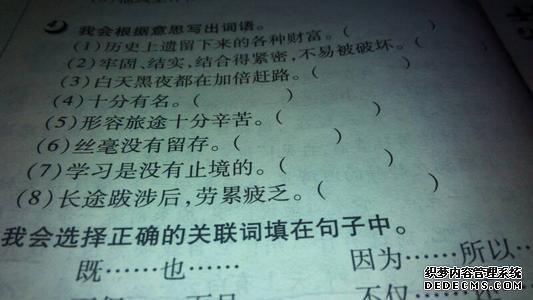 我会根据意思写出词语。
(1)历史上遗留下来的各种财富。( )
(2)牢固、结实,结合得紧密,不易被破坏。( )
(3)白天黑夜都在加倍赶路。( )
(4)十分有名。( )
(5)形容旅途十分辛苦。( )
(6)丝毫没有留存。( )
(7)学习是没有止境的。( )
(8)长途跋涉后,劳累疲乏。( )
我会选择正确的关联词填在句子中。
既……也…… 因为……所以…
不仅……
织梦内容管理系统
DEDECMS.COM